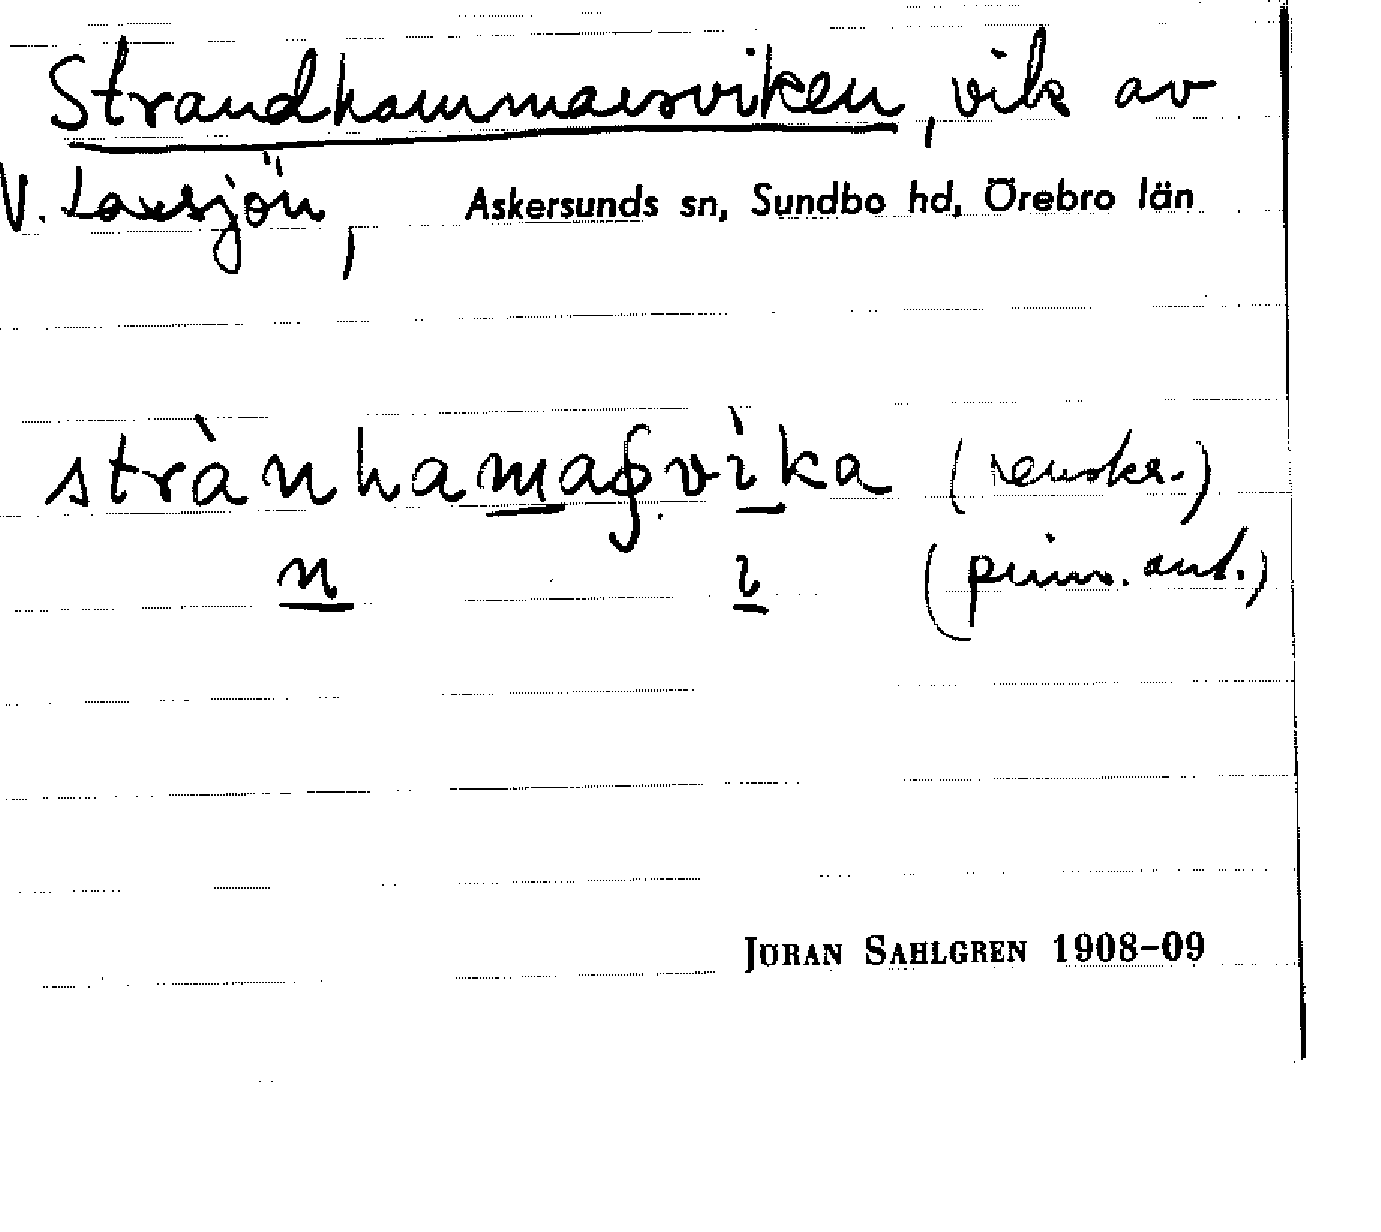 Strandhammarsviken, vik av
V. Laxsjön, Askersunds sn, Sundbo hd, Örebro län
strànhamaʂvìka (renskr.)
n ı (prim. ant.)
JÖRAN SAHLGREN 1908–09